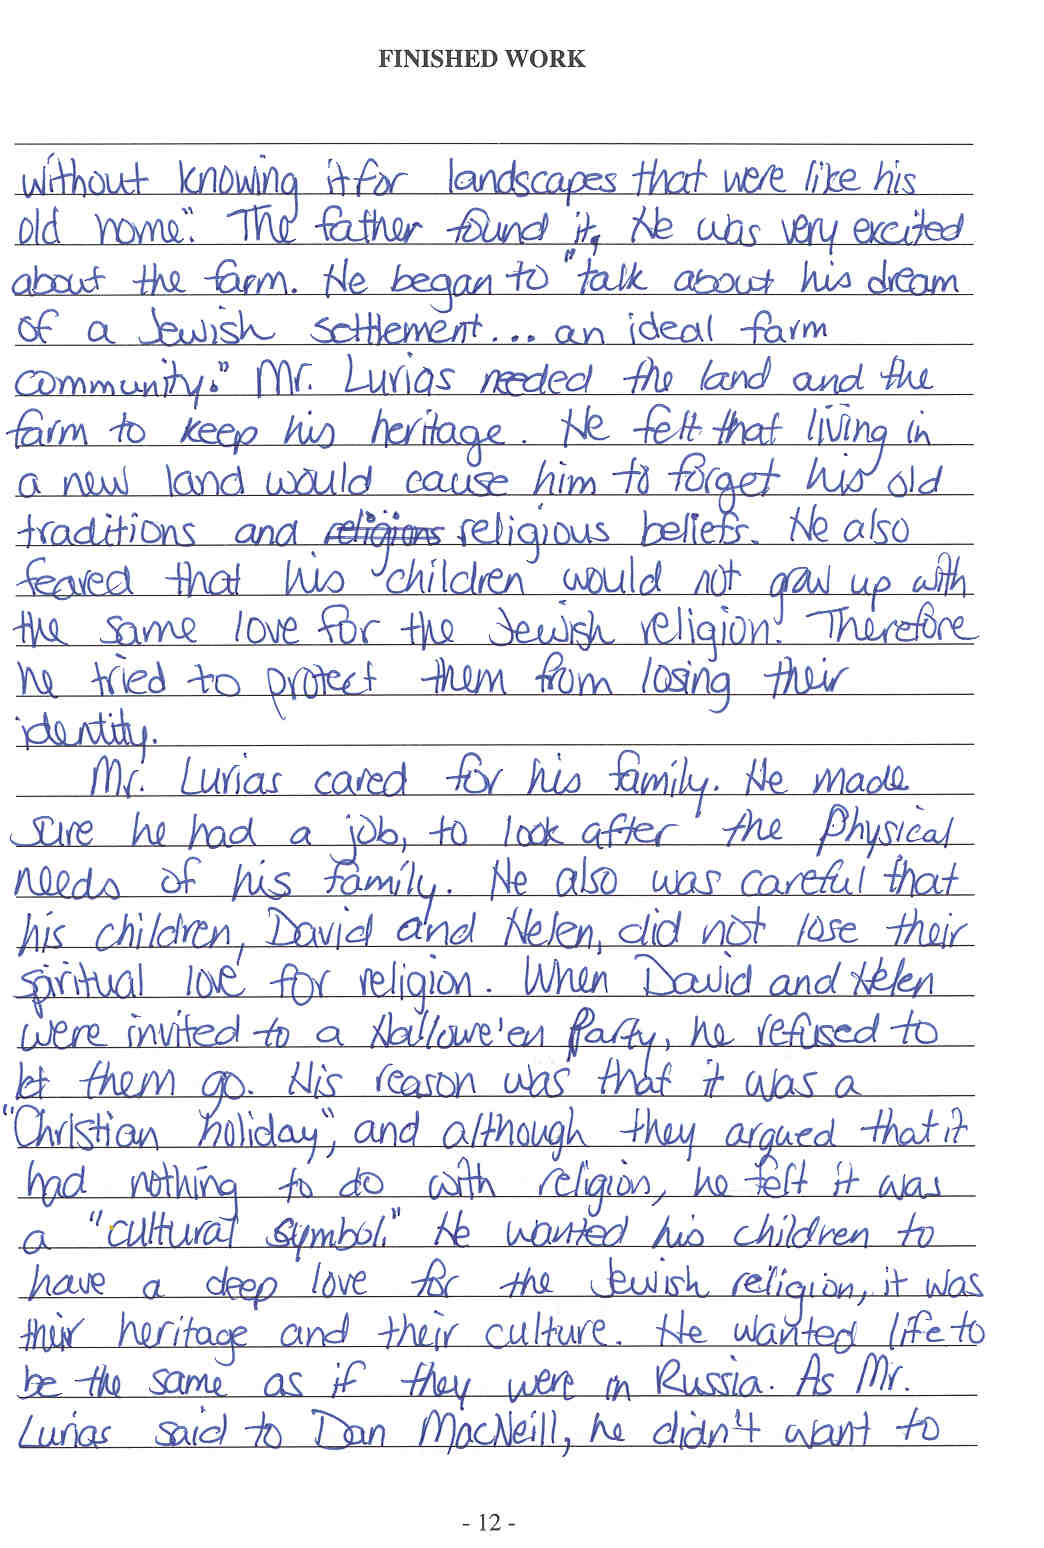 FINISHED WORK
without knowing it for landscapes that were like his
old home". The father found it, He was very excited
about the farm. He began to "talk about his dream
of a Jewish settlement... an ideal farm
community." Mr. Lurias needed the land and the
farm to keep his heritage. He felt that living in
a new land would cause him to forget his old
traditions and religions religious beliefs. He also
feared that his children would not grow up with
the same love for the Jewish religion. Therefore
he tried to protect them from losing their
identity.
Mr. Lurias cared for his family. He made
sure he had a job, to look after the Physical
needs of his family. He also was careful that
his children, David and Helen, did not lose their
spiritual love for religion. When David and Helen
were invited to a Hallowe'en Party, he refused to
let them go. His reason was that it was a
"Christian holiday", and although they argued that it
had nothing to do with religion, he felt it was
a "cultural symbol." He wanted his children to
have a deep love for the Jewish religion, it was
their heritage and their culture. He wanted life to
be the same as if they were in Russia. As Mr.
Lurias said to Dan MacNeill, he didn't want to
- 12 -